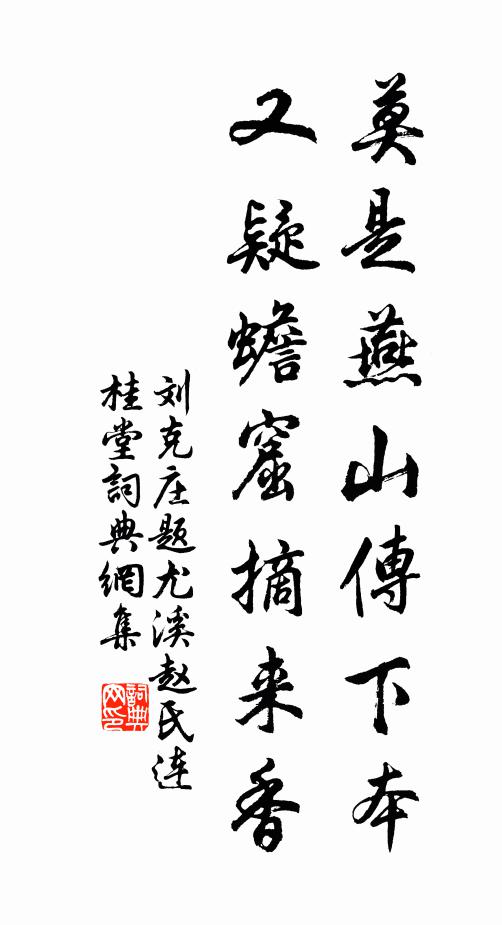 莫是燕山傳下本
又疑蟾窟摘来香
刘克庄题尤溪赵氏连
桂堂詞典網集
詞典網印